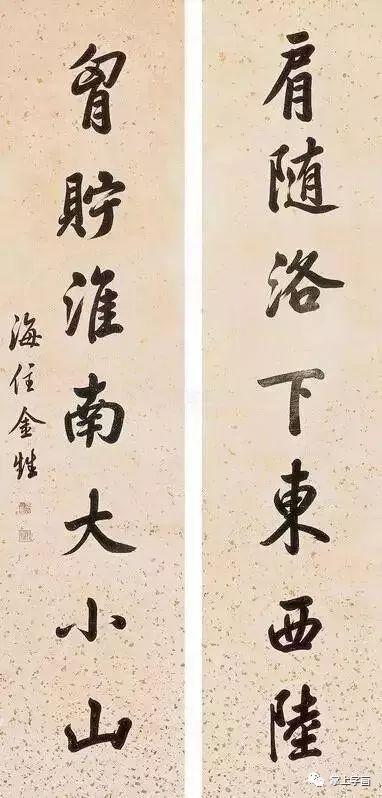 肩随洛下東西陸
胷貯淮南大小山
海住金甡
掌上字画